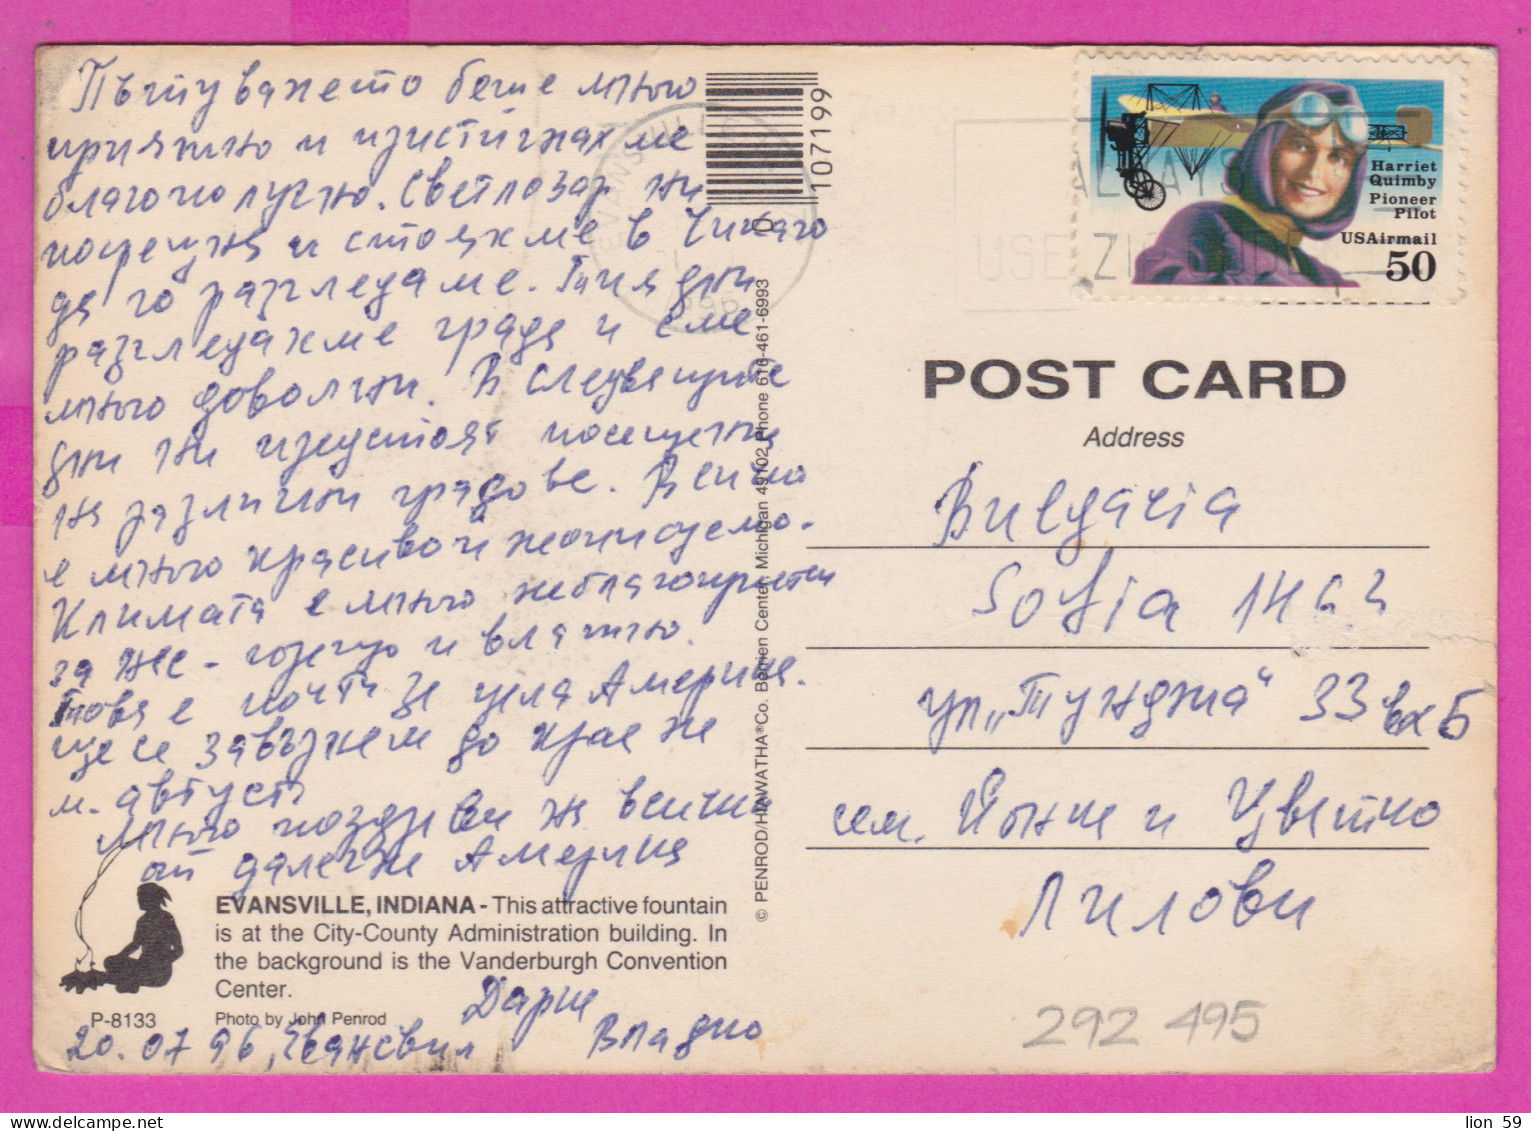 Пътуването беше много
приятно и пристигнахме
благополучно. Светлозар ни
посрещна и стояхме в Чикаго
да го разгледаме. Тия дни
разгледахме града и сме
много доволни. В следващите
дни ни предстоят посещения
на различни градове. Всичко
е много красиво и живописно.
Климата е много неблагоприятен
за нас - горещо и влажно.
Това е почти за цяла Америка.
Ще се завърнем до края на
м. август
Много поздрави на всички
от далечна Америка
EVANSVILLE, INDIANA - This attractive fountain
is at the City-County Administration building. In
the background is the Vanderburgh Convention
Center.
P-8133
Photo by John Penrod
Дарина
20.07 96, Евансвил
Владко
107199
0
© PENROD/HIAWATHA®Co. Berrien Center, Michigan 49102 Phone 616-461-6993
EVANSVILLE
ALWAYS
USE ZIP CODE
Harriet
Quimby
Pioneer
Pilot
USAirmail
50
POST CARD
Address
Bulgaria
Sofia 1463
ул. „Тунджа" 33 вх Б
сем. Янка и Цветко
Лилови
292 495
lion 59